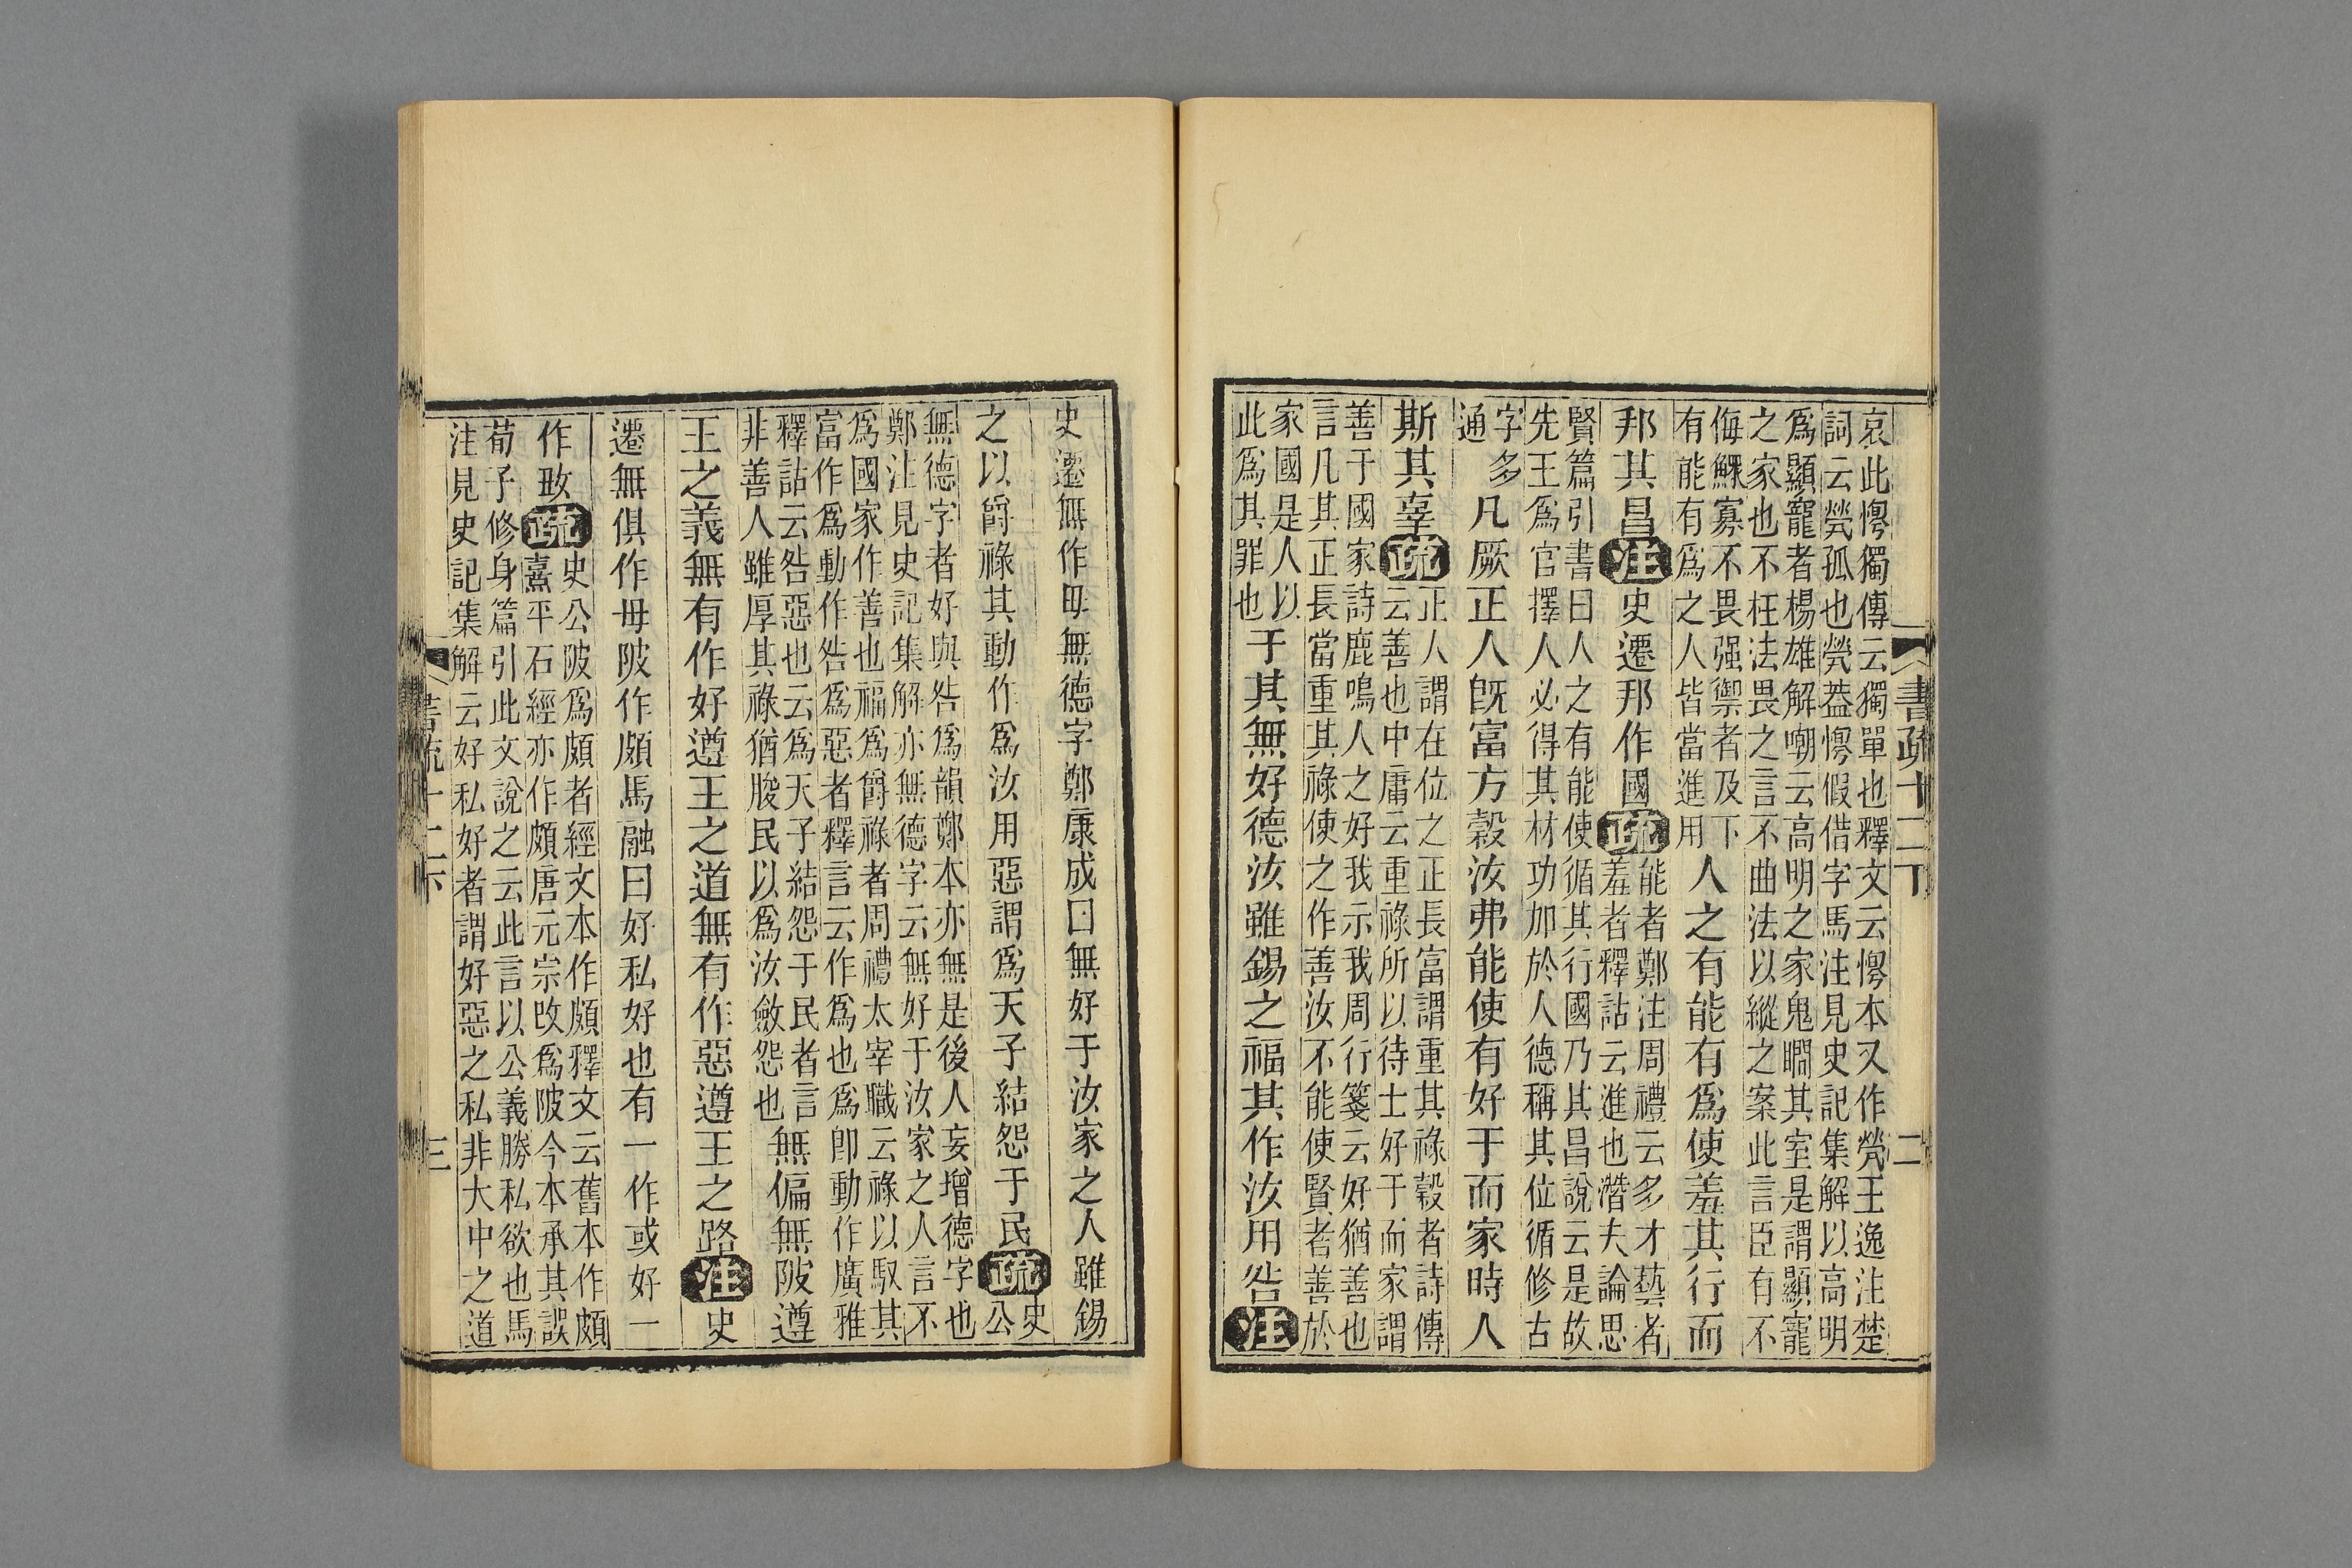 書疏十二下 二
哀此惸獨傳云獨單也釋文云惸本又作㷀王逸注楚
詞云㷀孤也㷀葢惸假借字馬注見史記集解以高明
爲顯寵者楊雄解嘲云高明之家鬼瞷其室是謂顯寵
之家也不枉法畏之言不曲法以縱之案此言臣有不
侮鰥寡不畏强禦者及下
有能有爲之人皆當進用
人之有能有爲使羞其行而
邦其昌注史遷邦作國疏
能者鄭注周禮云多才藝者
羞者釋詁云進也潛夫論思
賢篇引書曰人之有能使循其行國乃其昌說云是故
先王爲官擇人必得其材功加於人德稱其位循修古
字多
通
凡厥正人旣富方穀汝弗能使有好于而家時人
斯其辜疏
正人謂在位之正長富謂重其祿穀者詩傳
云善也中庸云重祿所以待士好于而家謂
善于國家詩鹿鳴人之好我示我周行箋云好猶善也
言凡其正長當重其祿使之作善汝不能使賢者善於
家國是人以
此爲其罪也
于其無好德汝雖錫之福其作汝用咎注
史遷無作毋無德字鄭康成曰無好于汝家之人雖錫
之以爵祿其動作爲汝用惡謂爲天子結怨于民疏
史
公
無德字者好與咎爲韻鄭本亦無是後人妄增德字也
鄭注見史記集解亦無德字云無好于汝家之人言不
爲國家作善也福爲爵祿者周禮太宰職云祿以馭其
富作爲動作咎爲惡者釋言云作爲也爲卽動作廣雅
釋詁云咎惡也云爲天子結怨于民者言
非善人雖厚其祿猶朘民以爲汝斂怨也
無偏無陂遵
王之義無有作好遵王之道無有作惡遵王之路注史
遷無俱作毋陂作頗馬融曰好私好也有一作或好一
作𢻺疏
史公陂爲頗者經文本作頗釋文云舊本作頗
熹平石經亦作頗唐元宗改爲陂今本承其誤
荀子修身篇引此文說之云此言以公義勝私欲也馬
注見史記集解云好私好者謂好惡之私非大中之道
書疏十二下 三